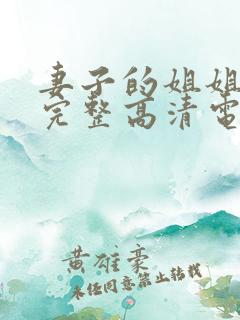 妻子的姐姐
完整高清电
黄雄豪
未经同意禁止转载